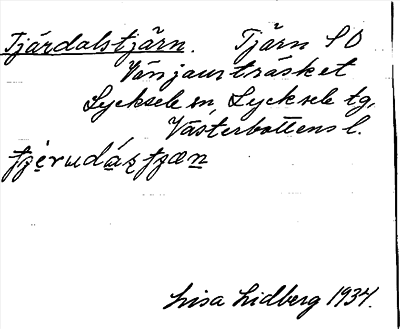 Tjärdalstjärn. Tjärn S O
Vänjaurträsket
Lycksele sn, Lycksele tg,
Västerbottens l.
Lisa Lidberg 1934.